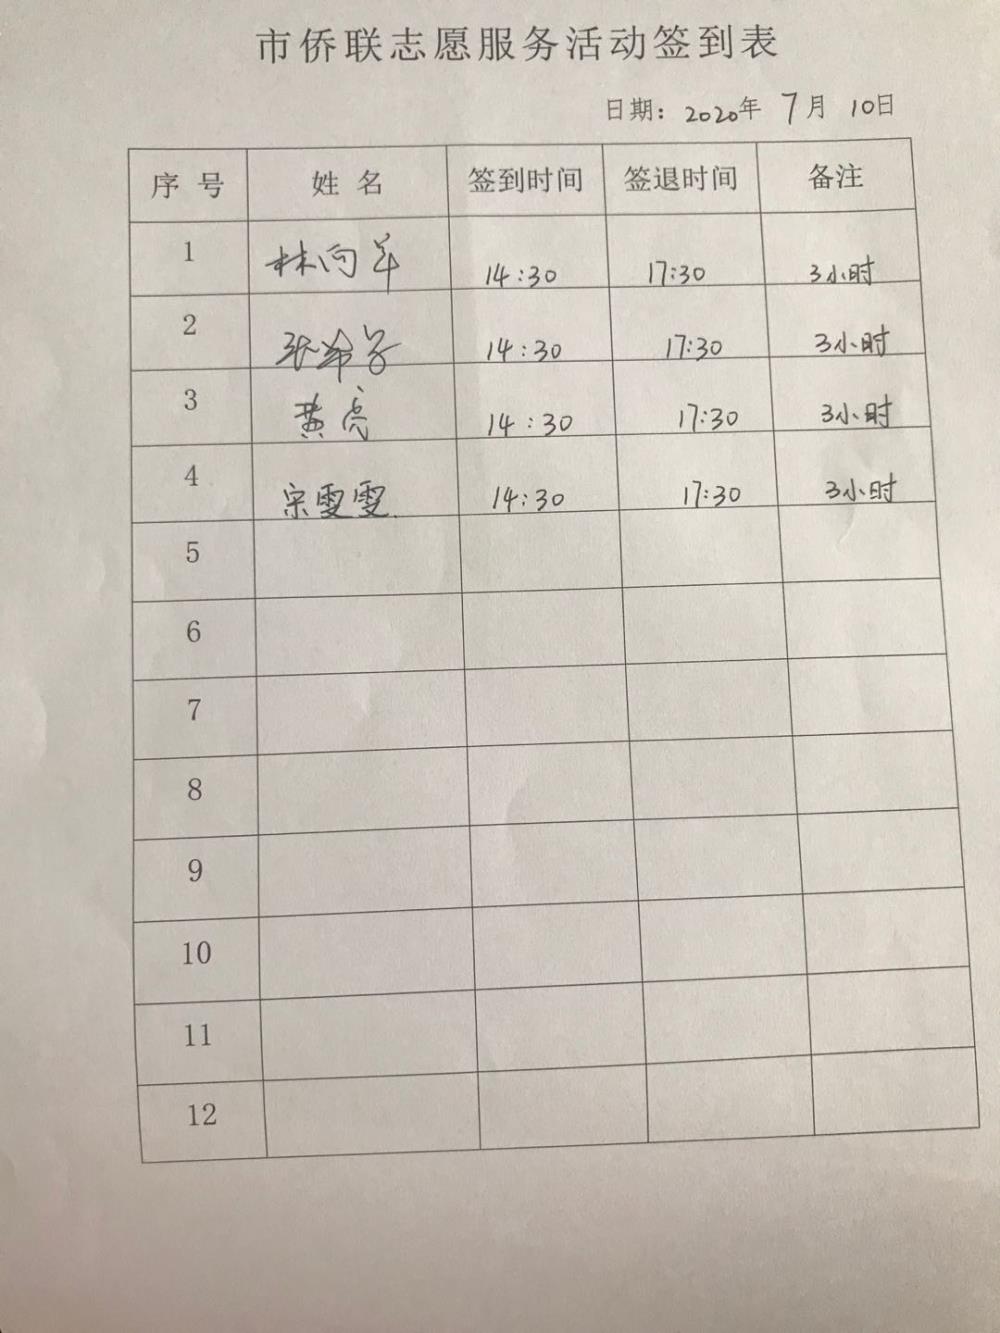 市侨联志愿服务活动签到表
日期：2020年 7月 10日
序 号 姓 名 签到时间 签退时间 备注
1 林向 14:30 17:30 3小时
2 张 14:30 17:30 3小时
3 黄亮 14:30 17:30 3小时
4 宋雯雯 14:30 17:30 3小时
5
6
7
8
9
10
11
12